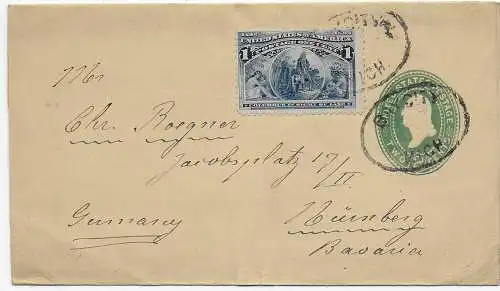 UNITED STATES OF AMERICA
POSTAGE ONE CENT
1 1
COLUMBUS IN SIGHT OF LAND
Mr
Chr. Roegner
Jacobsplatz 17/II
Germany
Nürnberg
Bavaria
STATES POSTAGE
TWO
CITY
MICH.